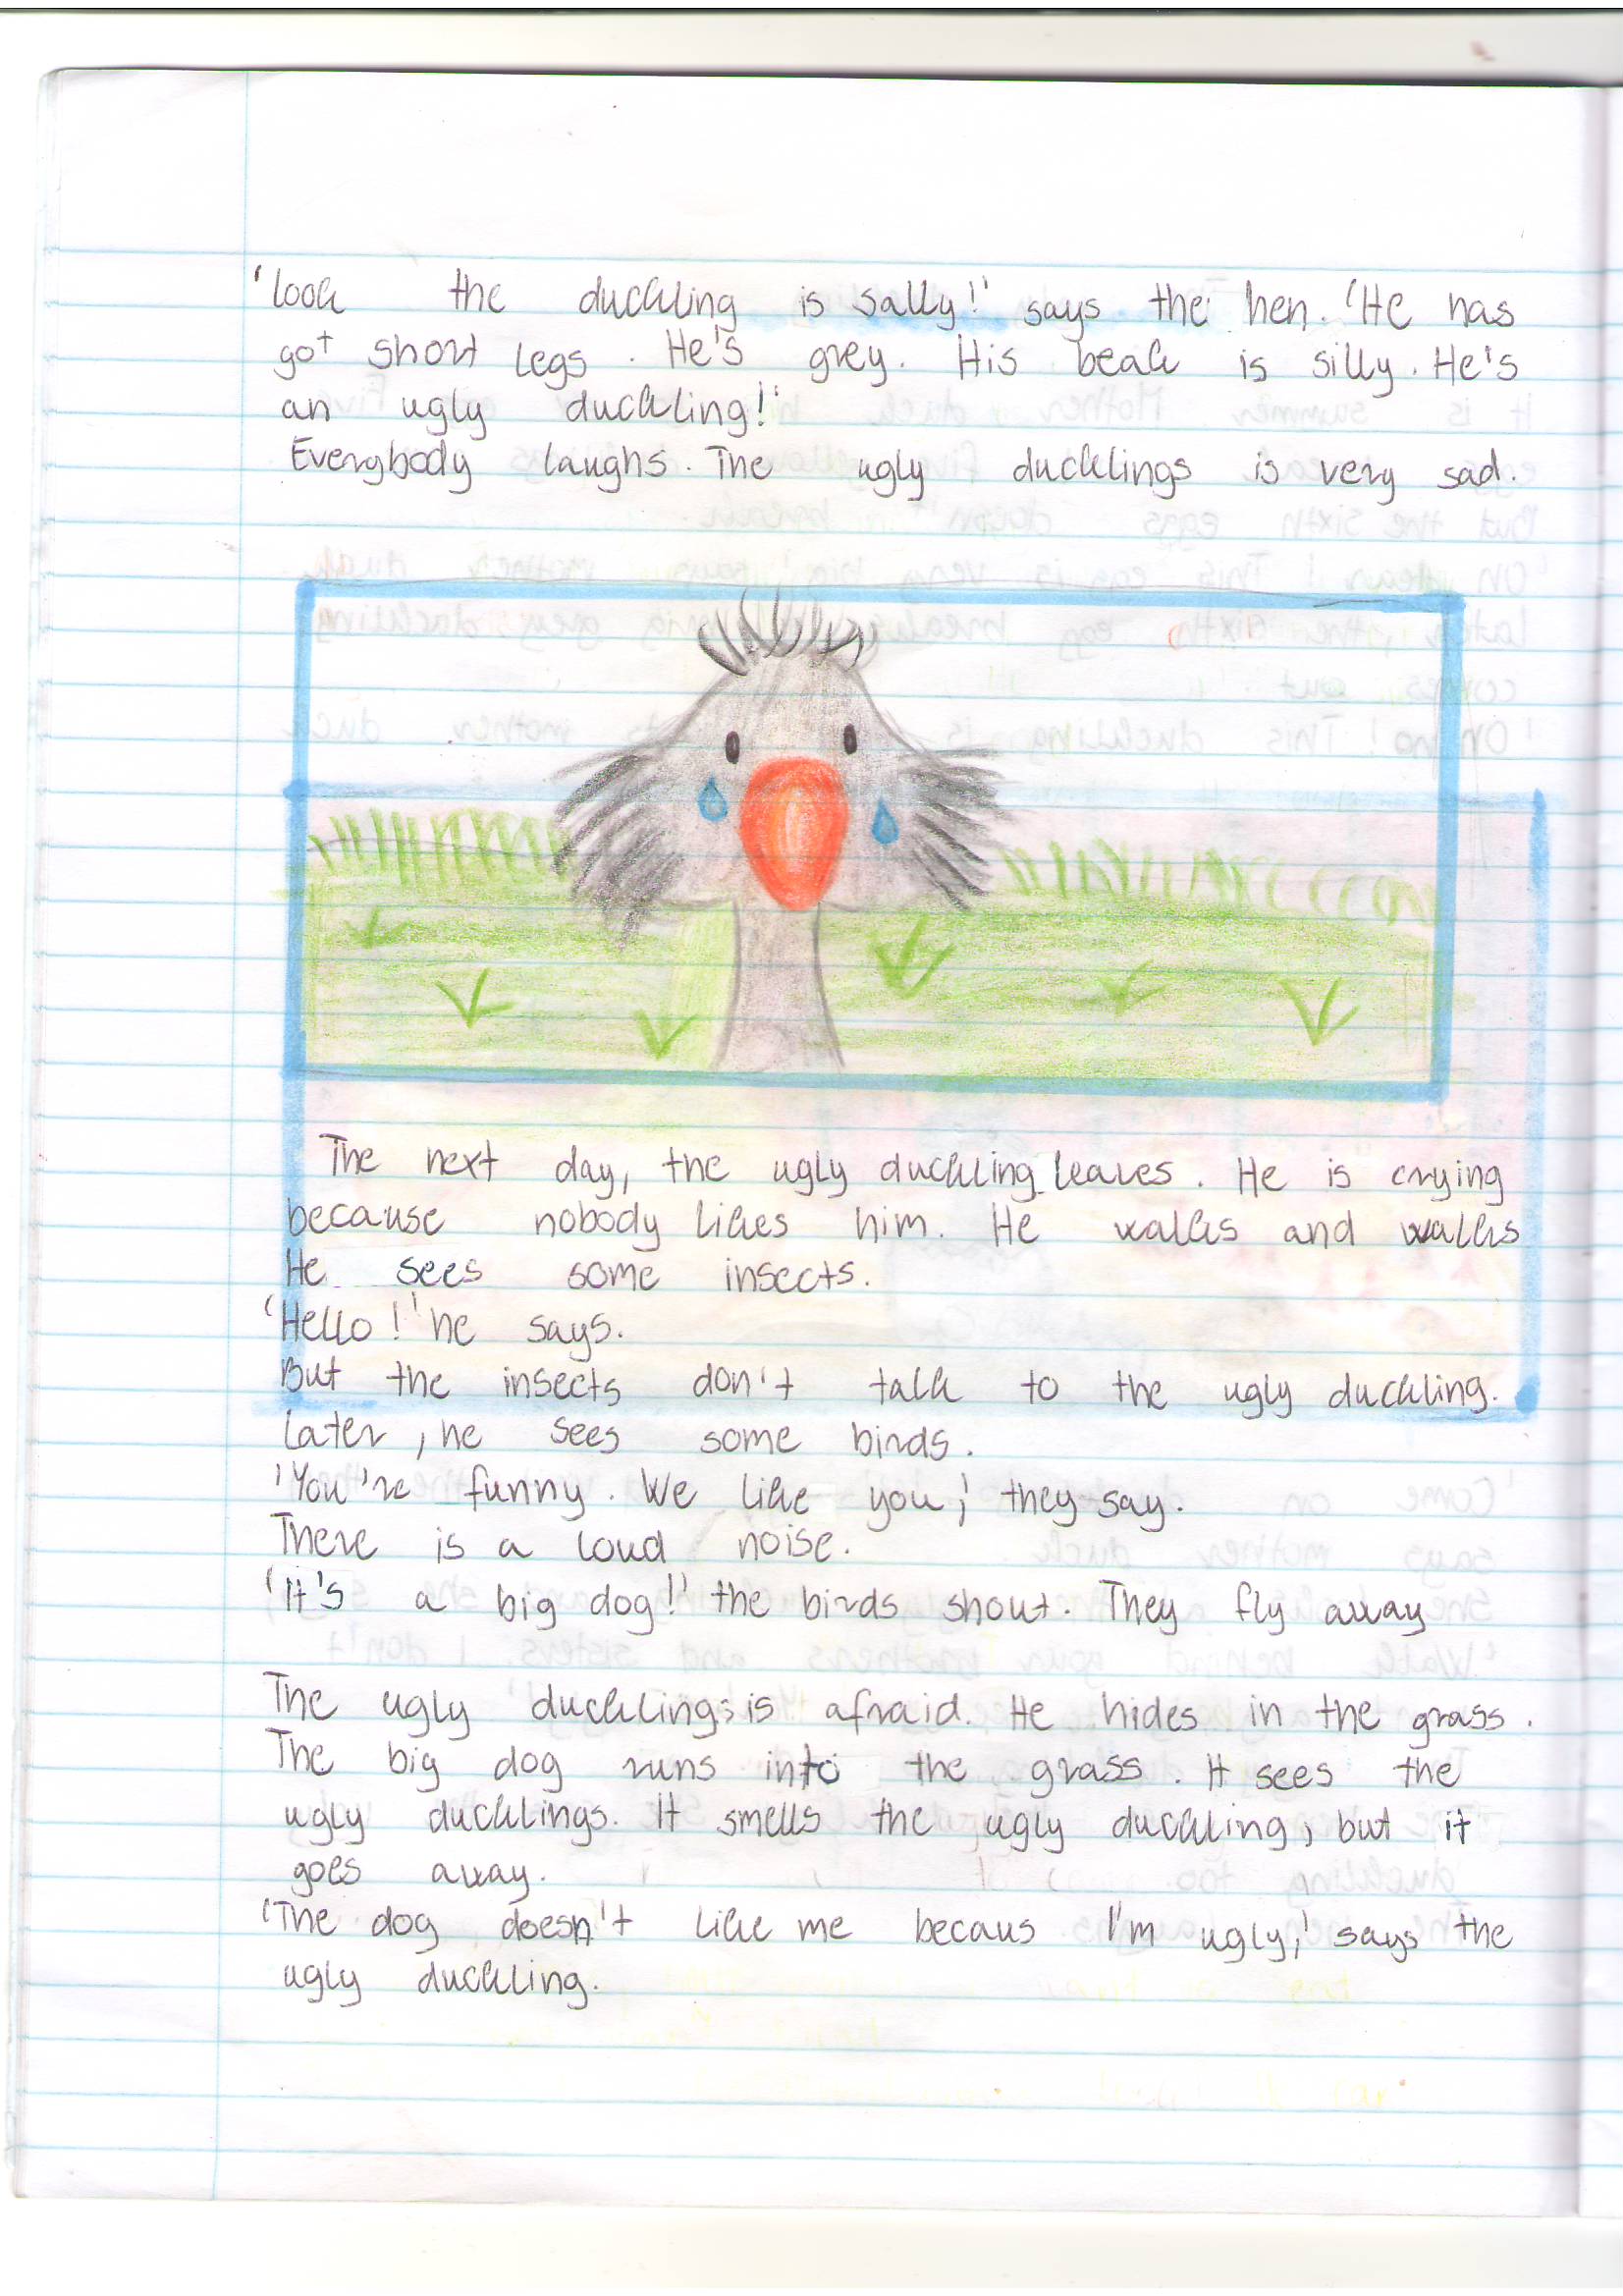 'Look the duckling is sally!' says the hen. 'He has
got short legs. He's grey. His beak is silly. He's
an ugly duckling!'
Everybody laughs. The ugly ducklings is very sad.
The next day, the ugly duckling leaves. He is crying
because nobody likes him. He walks and walks
He sees some insects.
'Hello!' he says.
But the insects don't talk to the ugly duckling.
Later, he sees some birds.
'You're funny. We like you,' they say.
There is a loud noise.
'It's a big dog!' the birds shout. They fly away
The ugly ducklings is afraid. He hides in the grass.
The big dog runs into the grass. It sees the
ugly ducklings. It smells the ugly duckling, but it
goes away.
'The dog doesn't like me becaus I'm ugly,' says the
ugly duckling.